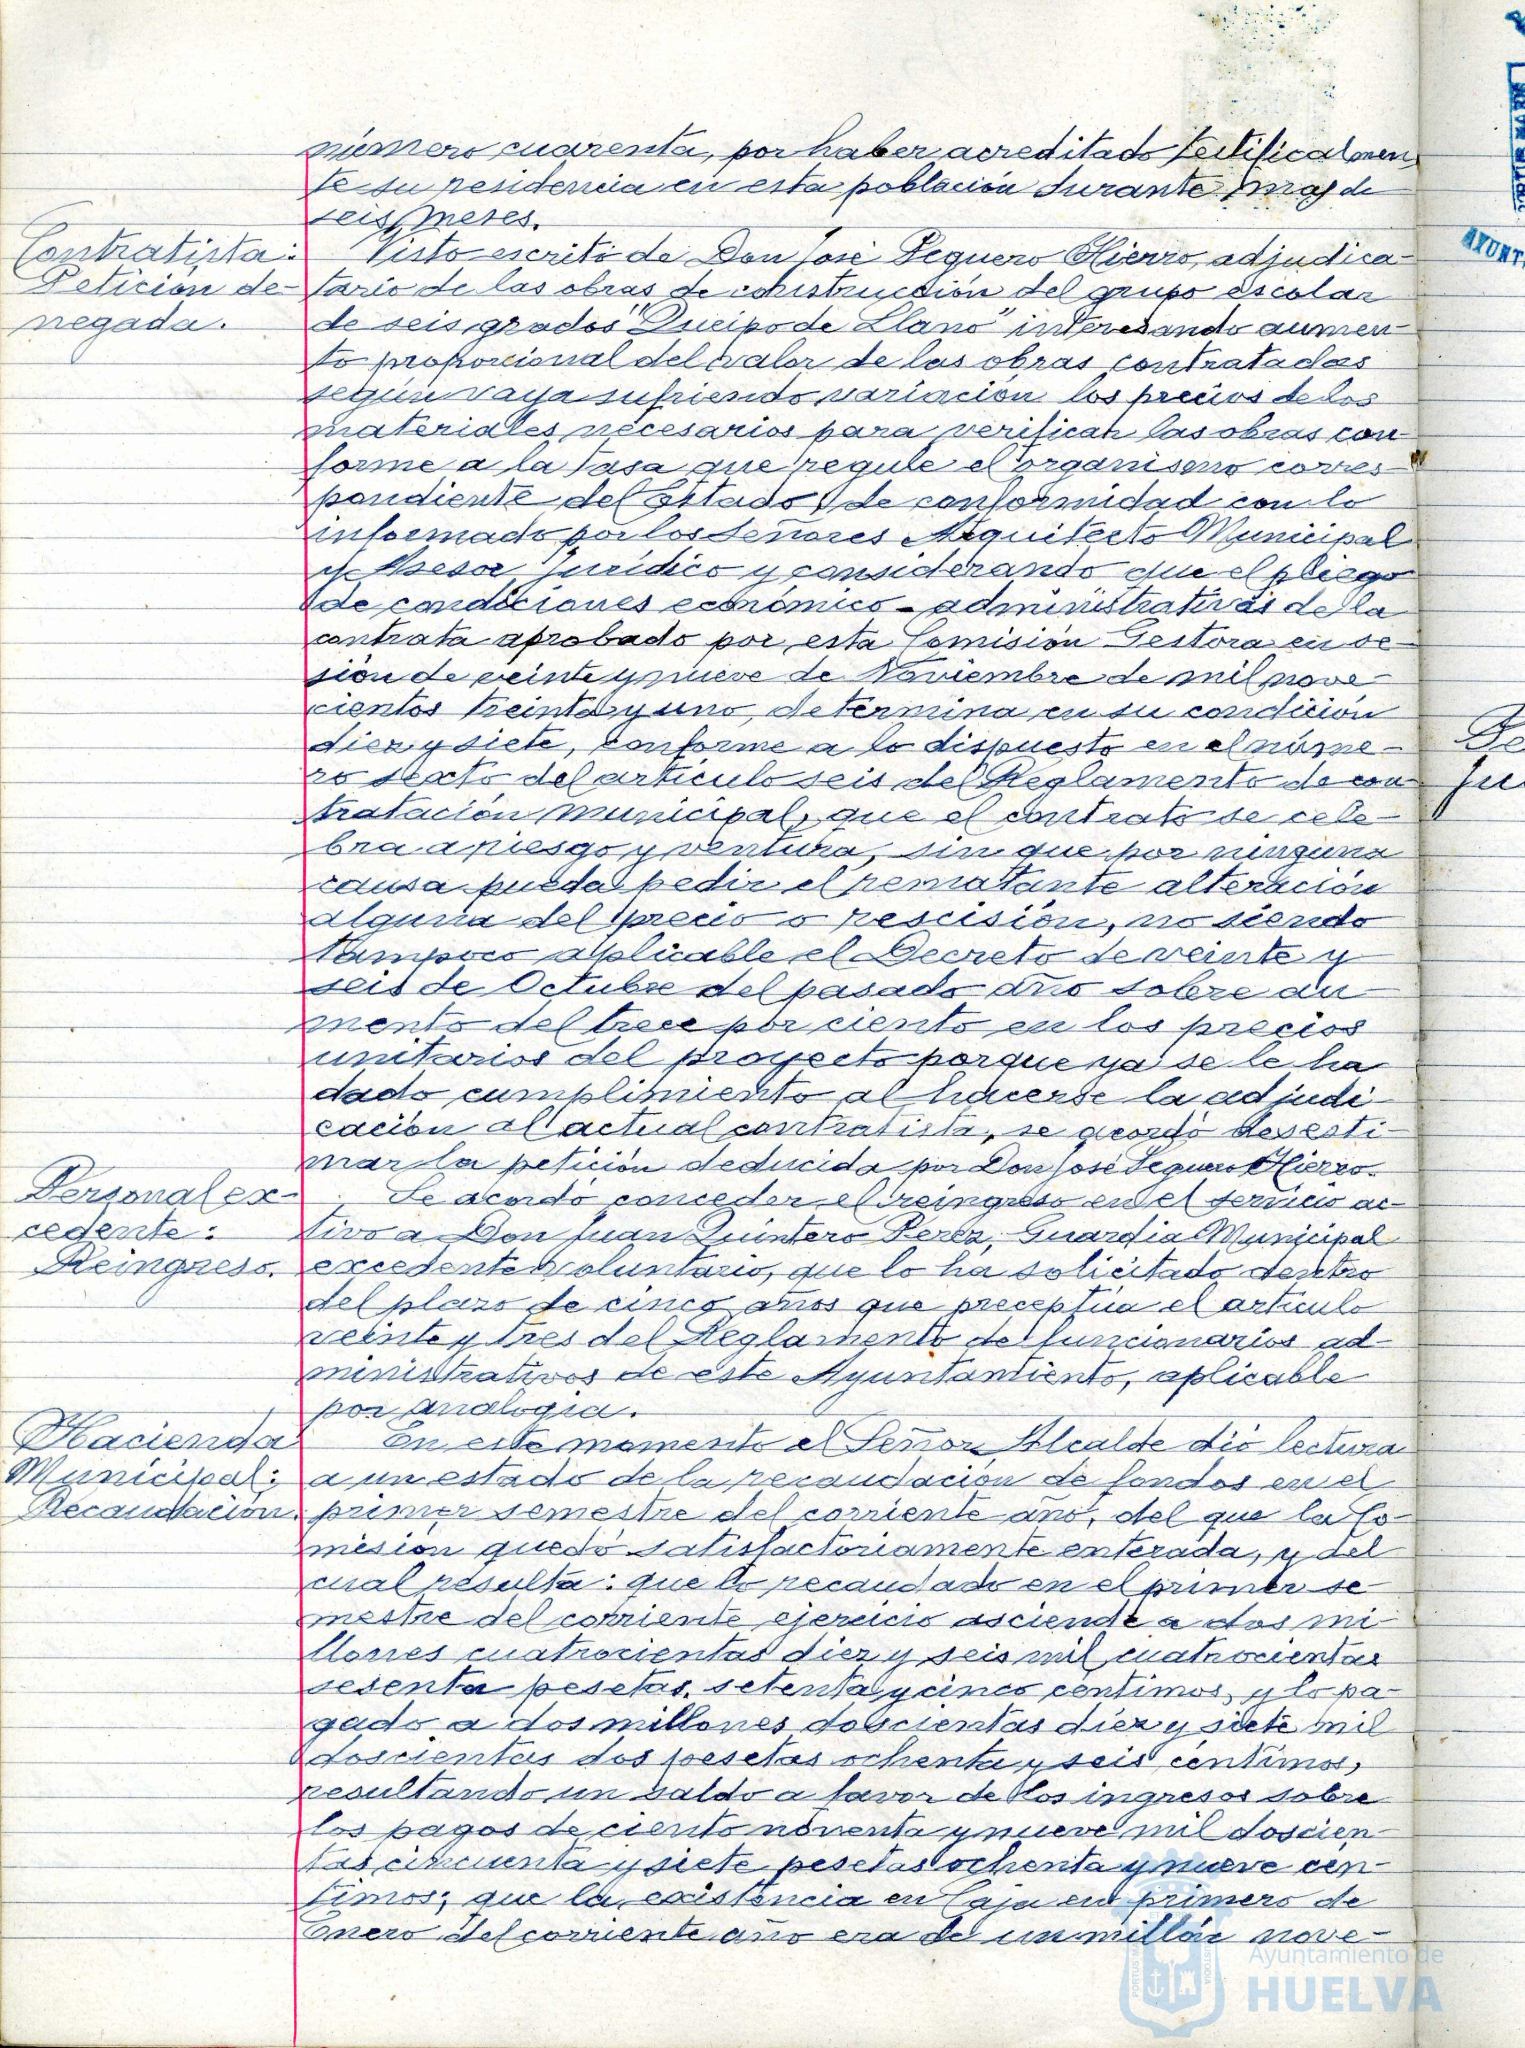 número cuarenta, por haber acreditado testificalmen
te su residencia en esta población durante mas de
seis meses.
Contratista:
Petición de-
negada.
Visto escrito de Don José Peguero Hierro, adjudica-
tario de las obras de construcción del grupo escolar
de seis grados "Queipo de Llano" interesando aumen-
to proporcional del valor de las obras contratadas
según vaya sufriendo variación los precios de los
materiales necesarios para verificar las obras con
forme a la tasa que regule el organismo corres-
pondiente del Estado, de conformidad con lo
informado por los Señores Arquitecto Municipal
y Asesor Jurídico y considerando que el pliego
de condiciones económico-administrativas de la
contrata aprobado por esta Comisión Gestora en se-
sión de veinte y nueve de Noviembre de mil nove-
cientos treinta y uno, determina en su condición
diez y siete, conforme a lo dispuesto en el núme-
ro sexto del artículo seis del Reglamento de con
tratación municipal, que el contrato se cele-
bra a riesgo y ventura, sin que por ninguna
causa pueda pedir el rematante alteración
alguna del precio o rescisión, no siendo
tampoco aplicable el Decreto de veinte y
seis de Octubre del pasado año sobre au-
mento del trece por ciento en los precios
unitarios del proyecto porque ya se le ha
dado cumplimiento al hacerse la adjudi-
cación al actual contratista, se acordó desesti-
mar la petición deducida por Don José Peguero Hierro.
Personal ex-
cedente:
Reingreso.
Se acordó conceder el reingreso en el servicio ac-
tivo a Don Juan Quintero Perez, Guardia Municipal
excedente voluntario, que lo ha solicitado dentro
del plazo de cinco años que preceptúa el artículo
veinte y tres del Reglamento de funcionarios ad-
ministrativos de este Ayuntamiento, aplicable
por analogía.
Hacienda
Municipal:
Recaudación.
En este momento el Señor Alcalde dió lectura
a un estado de la recaudación de fondos en el
primer semestre del corriente año, del que la Co-
misión quedó satisfactoriamente enterada, y del
cual resulta: que lo recaudado en el primer se-
mestre del corriente ejercicio asciende a dos mi-
llones cuatrocientas diez y seis mil cuatrocientas
sesenta pesetas, setenta y cinco céntimos, y lo pa-
gado a dos millones doscientas diez y siete mil
doscientas dos pesetas ochenta y seis céntimos,
resultando un saldo a favor de los ingresos sobre
los pagos de ciento noventa y nueve mil doscien-
tas cincuenta y siete pesetas ochenta y nueve cén-
timos; que la existencia en Caja en primero de
Enero del corriente año era de un millón nove-
Ayuntamiento de
HUELVA